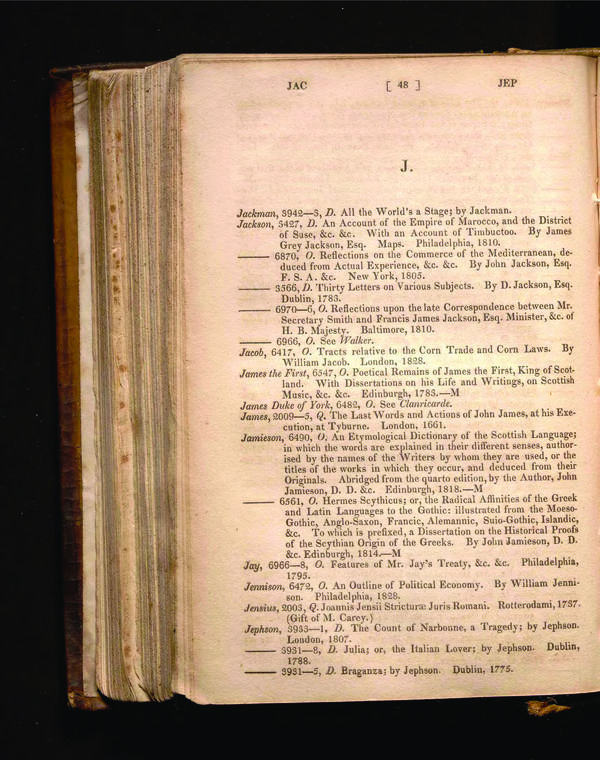 JAC [ 48 ] JEP
J.
Jackman, 3942—3, D. All the World's a Stage; by Jackman.
Jackson, 3427, D. An Account of the Empire of Marocco, and the District
of Suse, &c. &c. With an Account of Timbuctoo. By James
Grey Jackson, Esq. Maps. Philadelphia, 1810.
—— 6870, O. Reflections on the Commerce of the Mediterranean, de-
duced from Actual Experience, &c. &c. By John Jackson, Esq.
F. S. A. &c. New York, 1805.
—— 3566, D. Thirty Letters on Various Subjects. By D. Jackson, Esq.
Dublin, 1783.
—— 6970—6, O. Reflections upon the late Correspondence between Mr.
Secretary Smith and Francis James Jackson, Esq. Minister, &c. of
H. B. Majesty. Baltimore, 1810.
—— 6966, O. See Walker.
Jacob, 6417, O. Tracts relative to the Corn Trade and Corn Laws. By
William Jacob. London, 1828.
James the First, 6547, O. Poetical Remains of James the First, King of Scot-
land. With Dissertations on his Life and Writings, on Scottish
Music, &c. &c. Edinburgh, 1783.—M
James Duke of York, 6482, O. See Clanricarde.
James, 2009—5, Q. The Last Words and Actions of John James, at his Exe-
cution, at Tyburne. London, 1661.
Jamieson, 6490, O. An Etymological Dictionary of the Scottish Language;
in which the words are explained in their different senses, author-
ised by the names of the Writers by whom they are used, or the
titles of the works in which they occur, and deduced from their
Originals. Abridged from the quarto edition, by the Author, John
Jamieson, D. D. &c. Edinburgh, 1818.—M
—— 6561, O. Hermes Scythicus; or, the Radical Affinities of the Greek
and Latin Languages to the Gothic: illustrated from the Moeso-
Gothic, Anglo-Saxon, Francic, Alemannic, Suio-Gothic, Islandic,
&c. To which is prefixed, a Dissertation on the Historical Proofs
of the Scythian Origin of the Greeks. By John Jamieson, D. D.
&c. Edinburgh, 1814.—M
Jay, 6966—8, O. Features of Mr. Jay's Treaty, &c. &c. Philadelphia,
1795.
Jennison, 6472, O. An Outline of Political Economy. By William Jenni-
son. Philadelphia, 1828.
Jensius, 2003, Q. Joannis Jensii Stricturæ Juris Romani. Rotterodami, 1737.
(Gift of M. Carey.)
Jephson, 3933—1, D. The Count of Narbonne, a Tragedy; by Jephson.
London, 1807.
—— 3931—8, D. Julia; or, the Italian Lover; by Jephson. Dublin,
1788.
—— 3931—5, D. Braganza; by Jephson. Dublin, 1775.